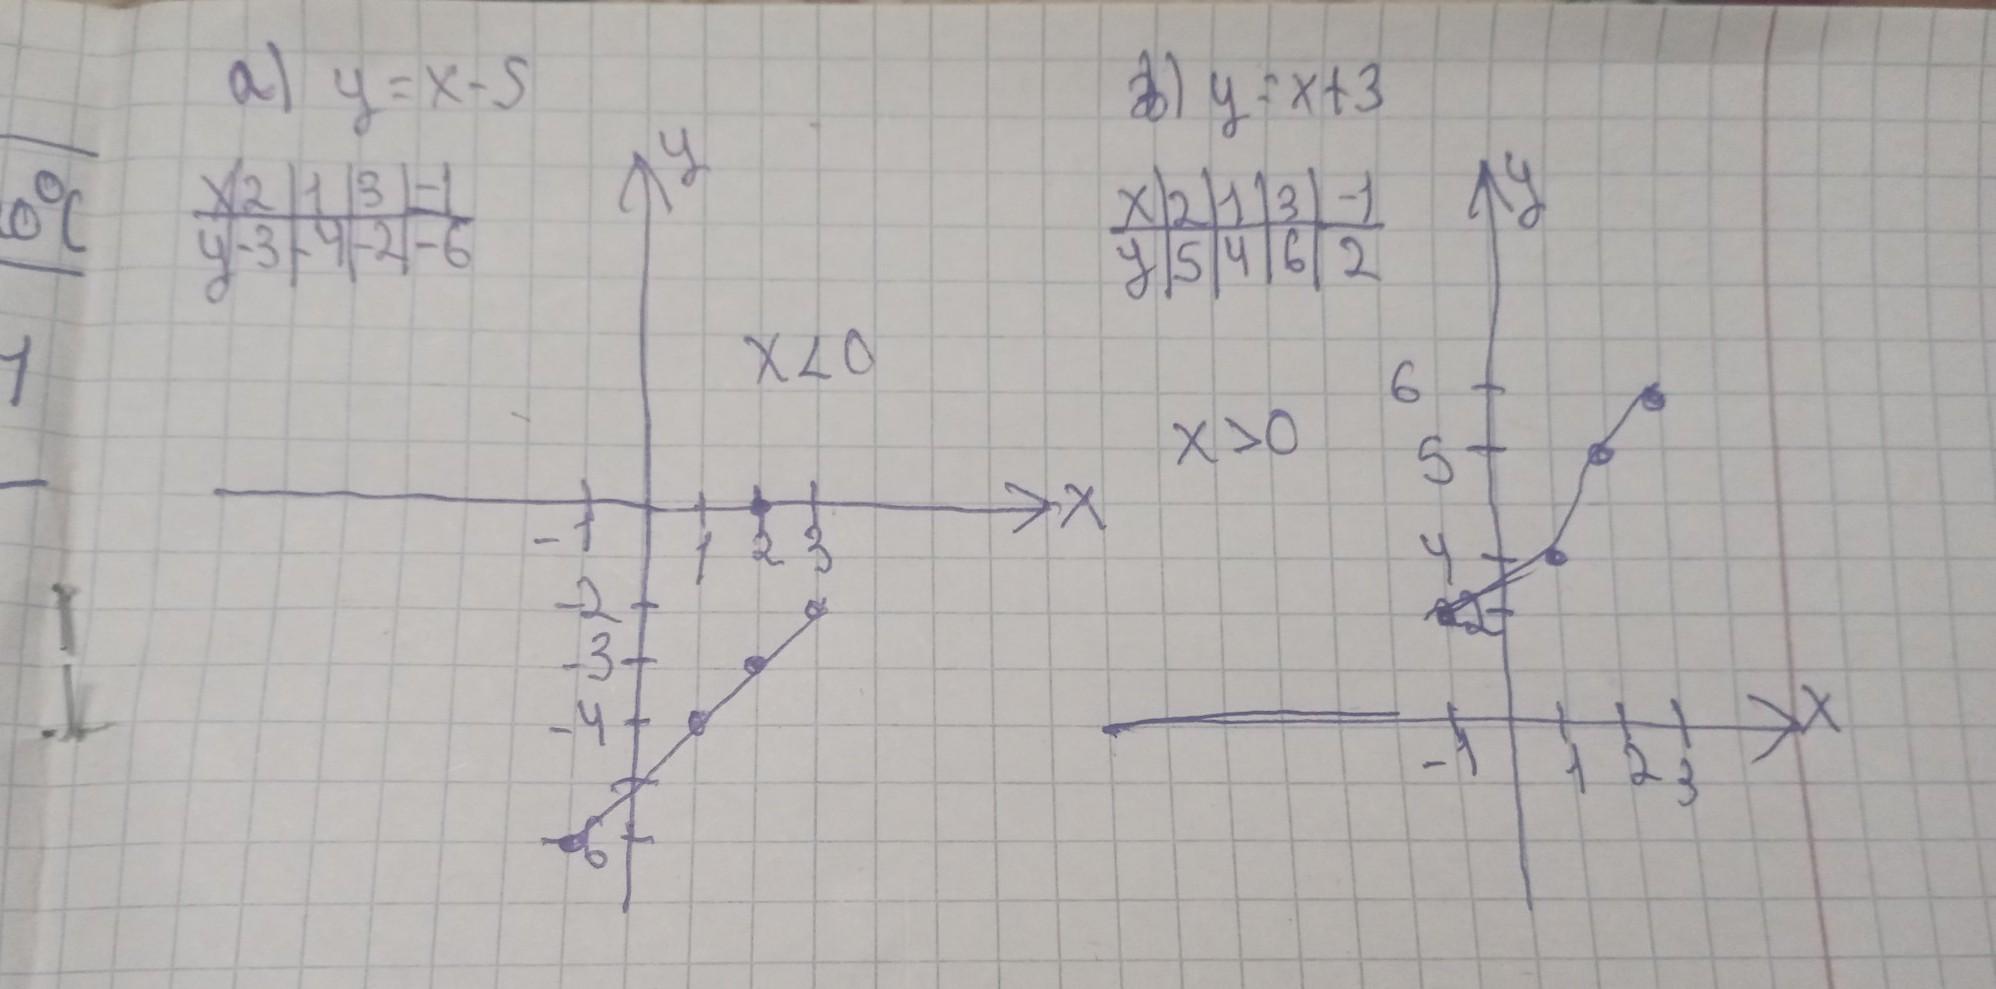 a) y = x - 5
x|2|1|3|-1
y|-3|-4|-2|-6
y
x<0
x
-1 1 2 3
-2
-3
-4
-6
b) y = x+3
x|2|1|3|-1
y|5|4|6|2
y
6
x>0
5
4
2
x
-1 1 2 3